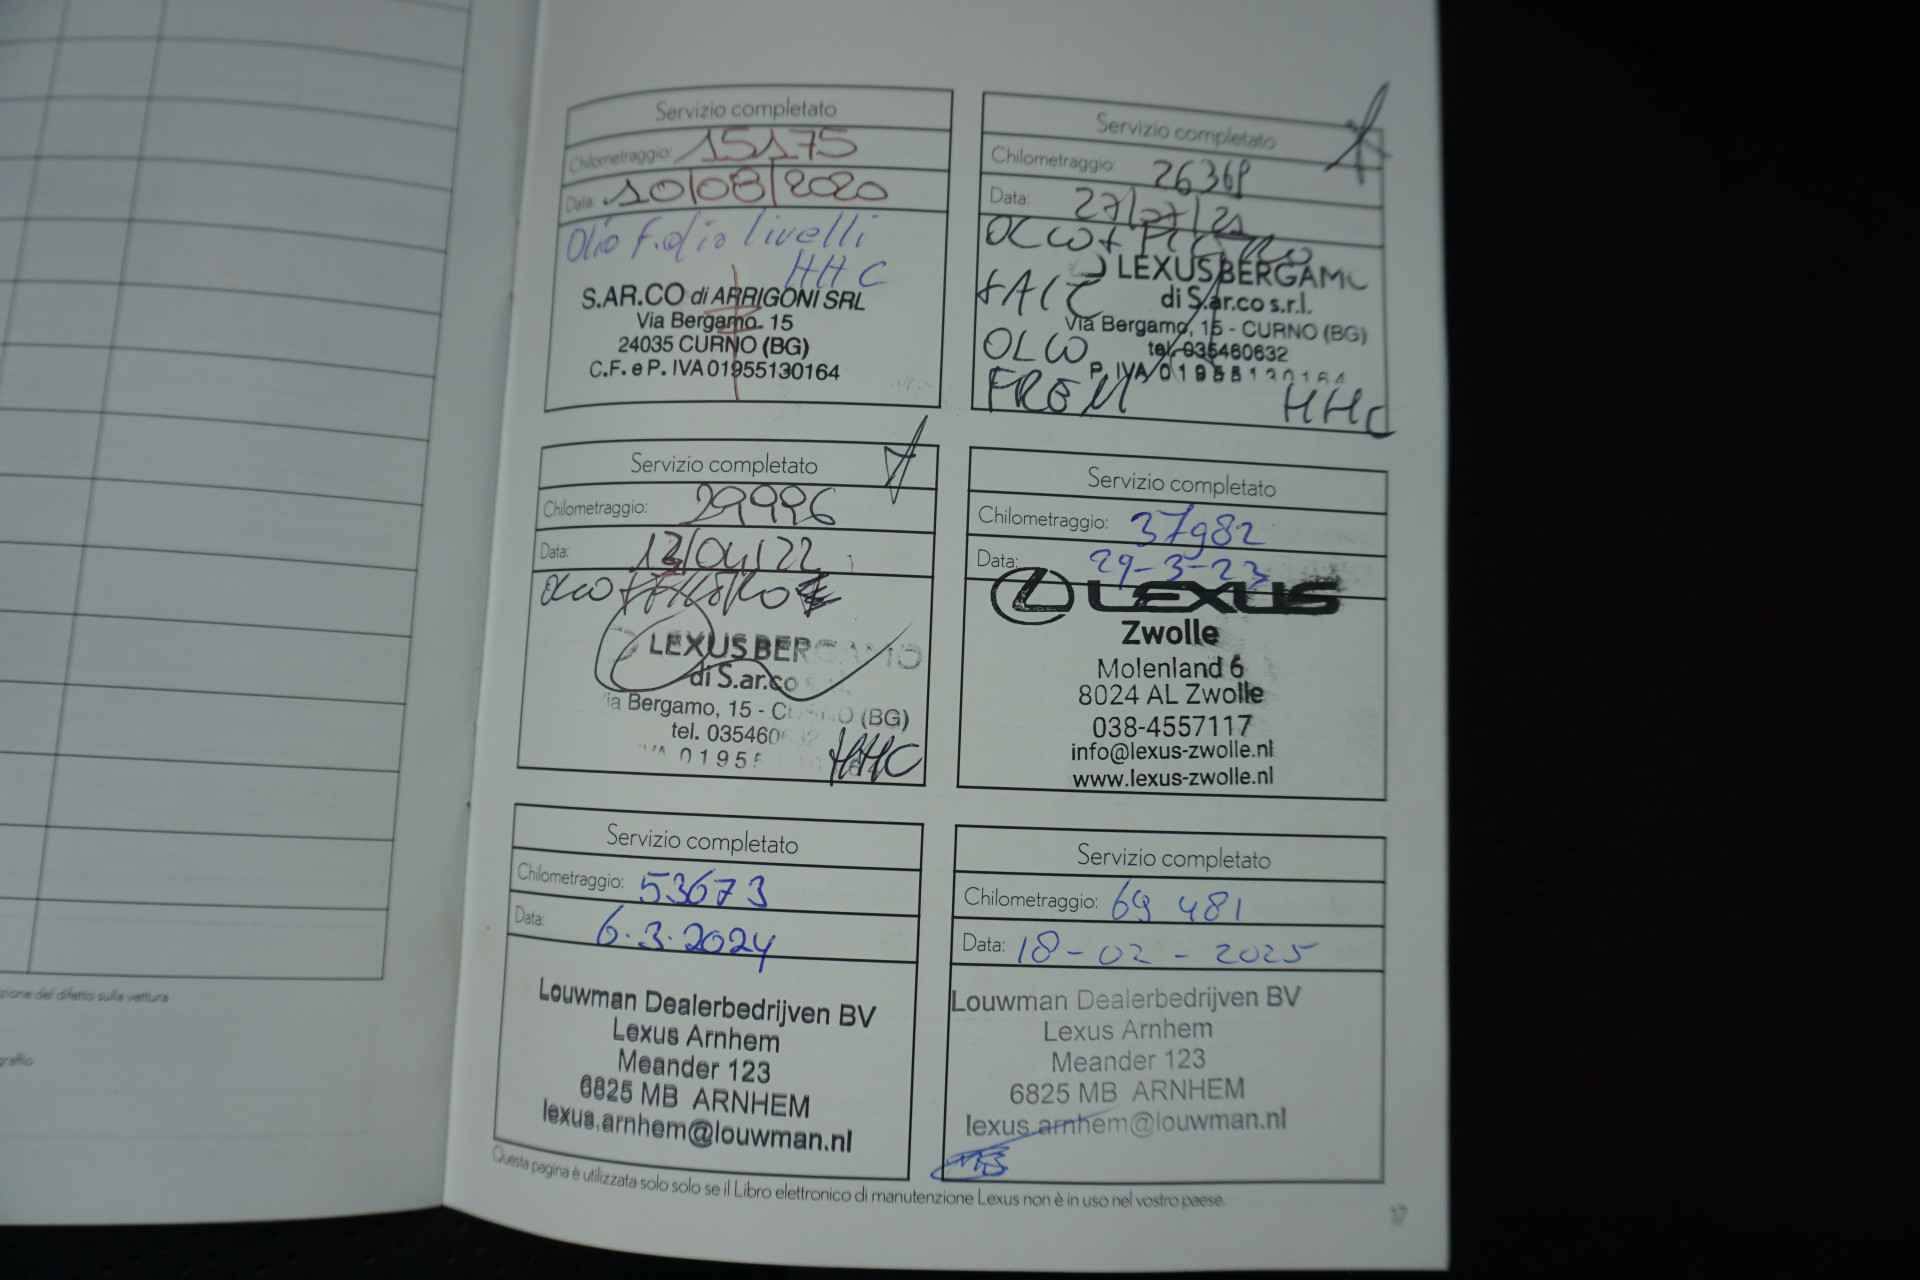 Servizio completato
Chilometraggio: 15175
Data: 10/08/2020
Olio f.olio livelli
HHC
S.AR.CO di ARRIGONI SRL
Via Bergamo 15
24035 CURNO (BG)
C.F. e P. IVA 01955130164
Servizio completato
Chilometraggio: 26369
Data: 27/07/21
LEXUS BERGAMO
di S.ar.co s.r.l.
Via Bergamo, 15 - CURNO (BG)
tel. 035460632
P. IVA 01955130164
OLIO
FRENI
HHC
Servizio completato
Chilometraggio: 29996
Data: 13/04/22
LEXUS BERGAMO
di S.ar.co
Via Bergamo, 15 - CURNO (BG)
tel. 035460632
HHC
Servizio completato
Chilometraggio: 37982
Data: 29-3-23
LEXUS
Zwolle
Molenland 6
8024 AL Zwolle
038-4557117
info@lexus-zwolle.nl
www.lexus-zwolle.nl
Servizio completato
Chilometraggio: 53673
Data: 6.3.2024
Louwman Dealerbedrijven BV
Lexus Arnhem
Meander 123
6825 MB ARNHEM
lexus.arnhem@louwman.nl
Servizio completato
Chilometraggio: 69 481
Data: 18-02-2025
Louwman Dealerbedrijven BV
Lexus Arnhem
Meander 123
6825 MB ARNHEM
lexus.arnhem@louwman.nl
Questa pagina è utilizzata solo solo se il Libro elettronico di manutenzione Lexus non è in uso nel vostro paese.
17
zione del difetto sulla vettura